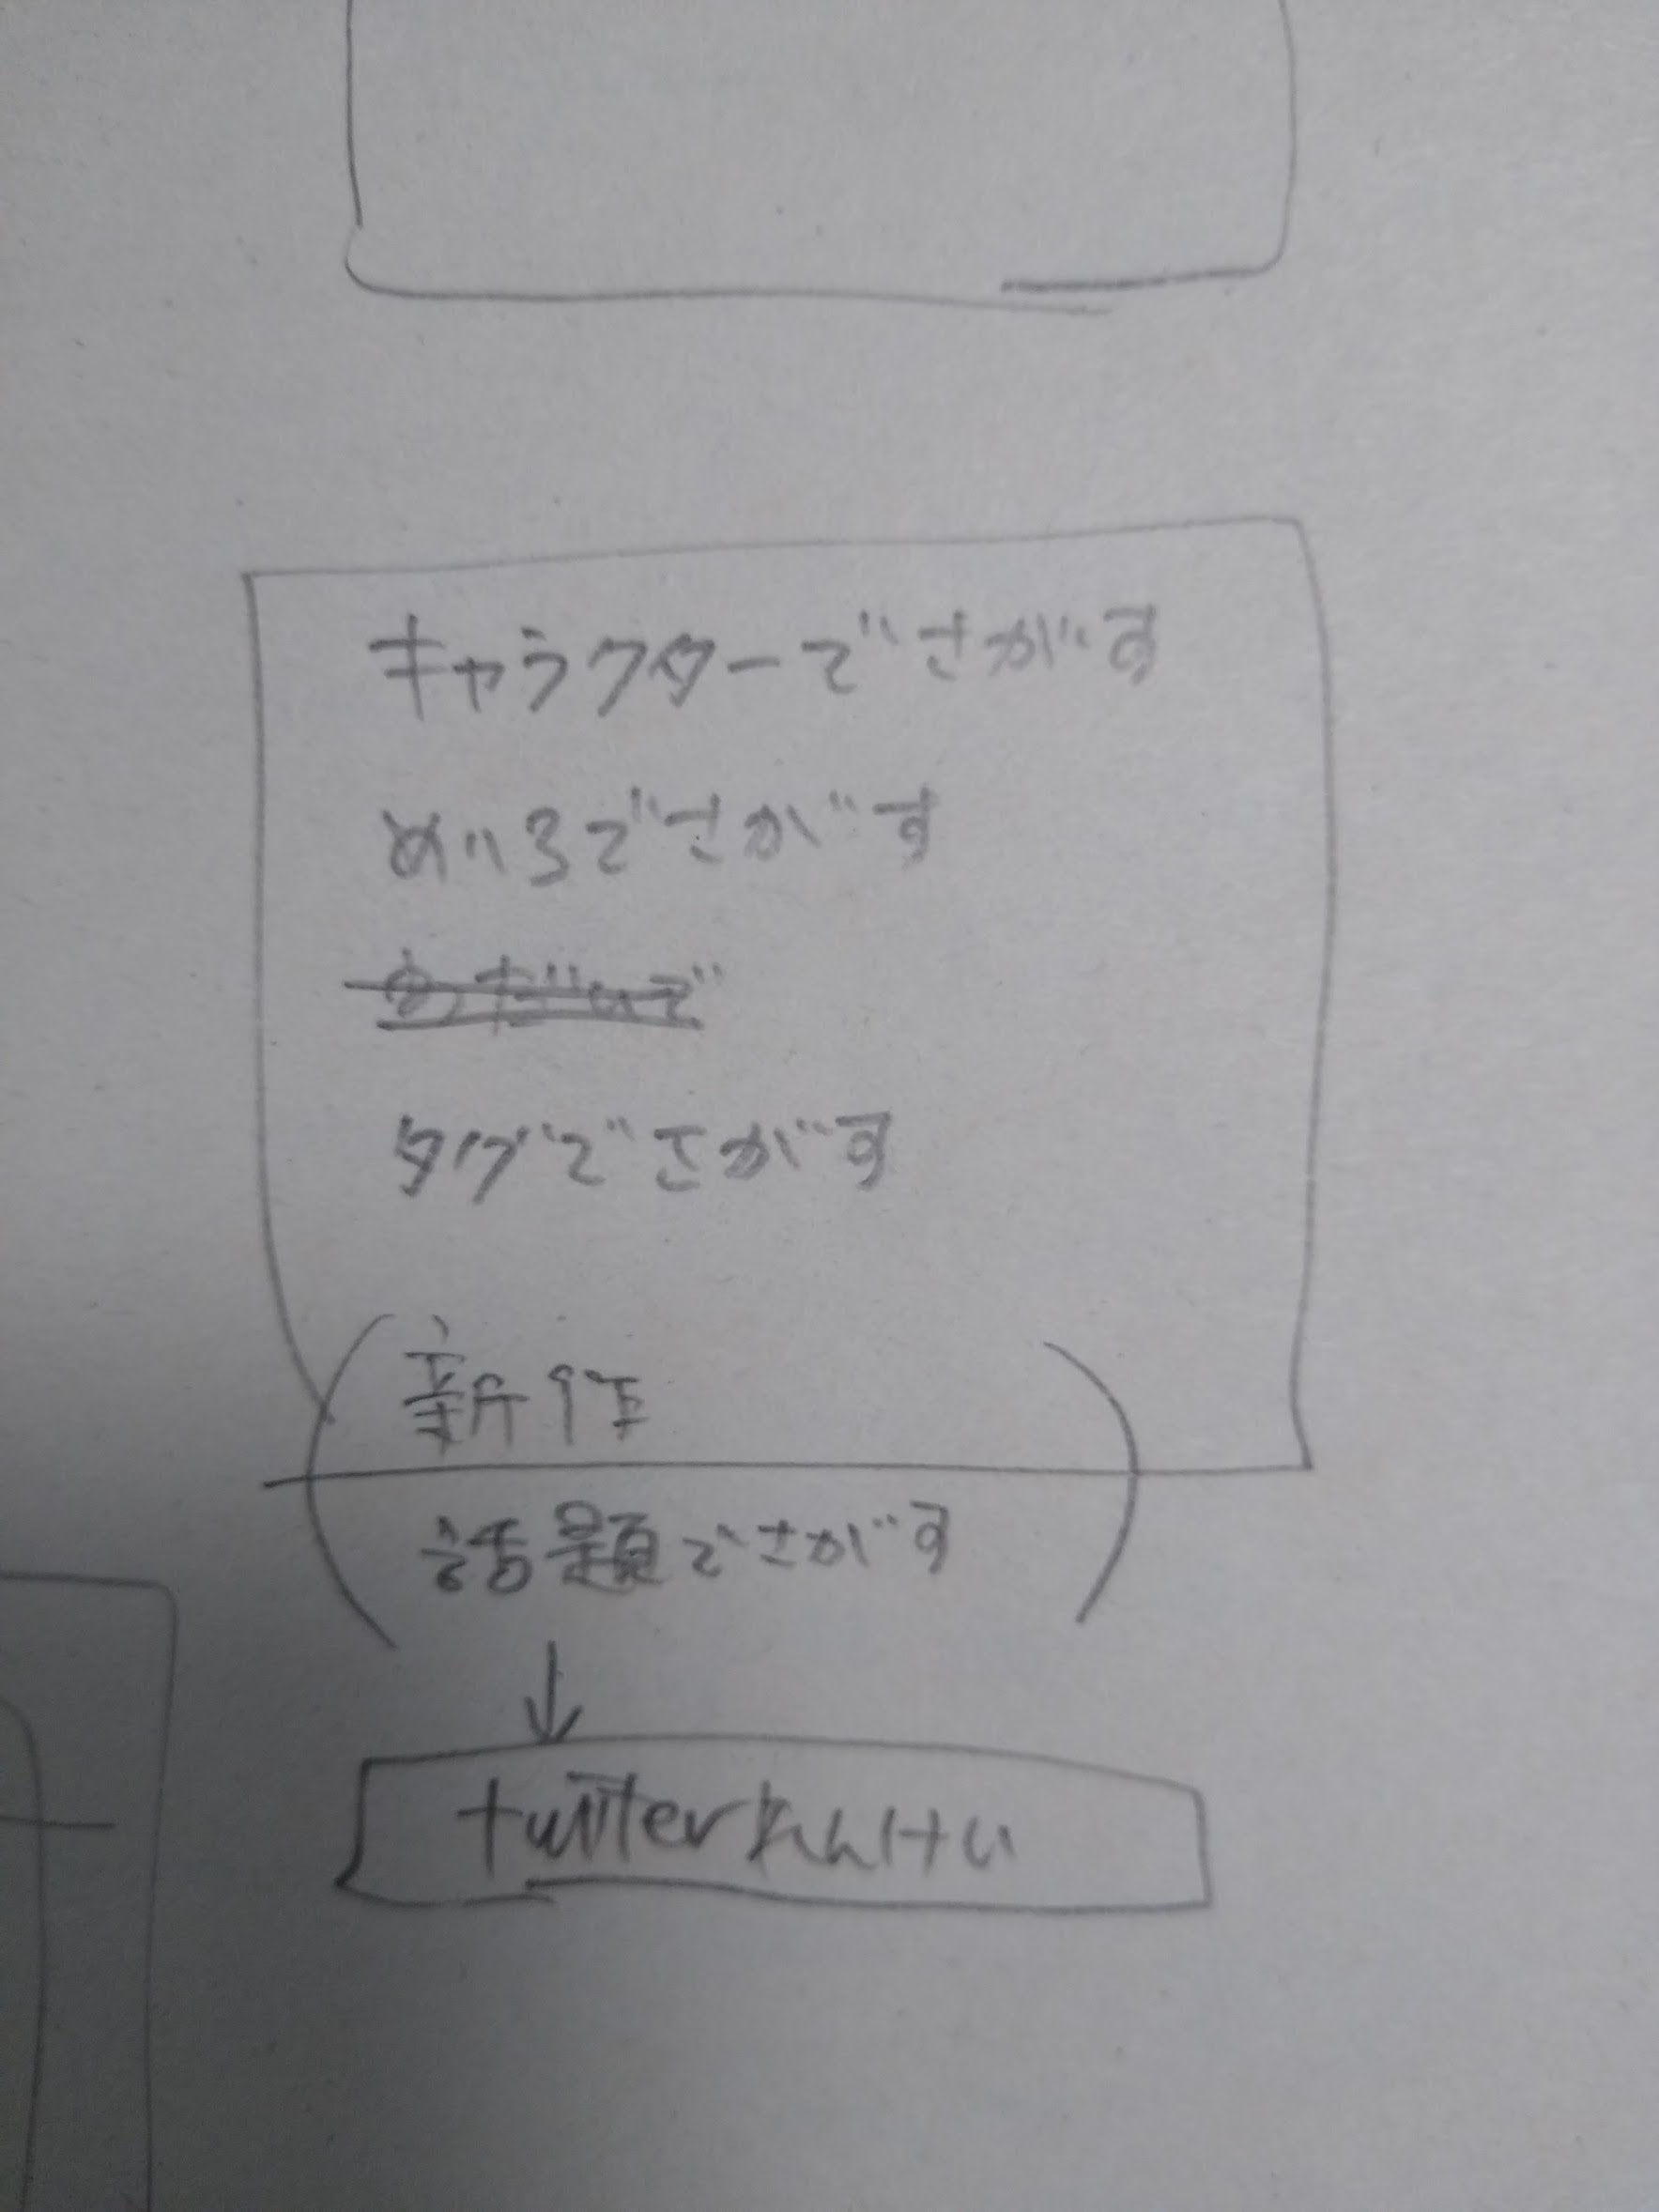 キャラクターでさがす
めいろでさがす
タグでさがす
新作
話題でさがす
twitterれんけい